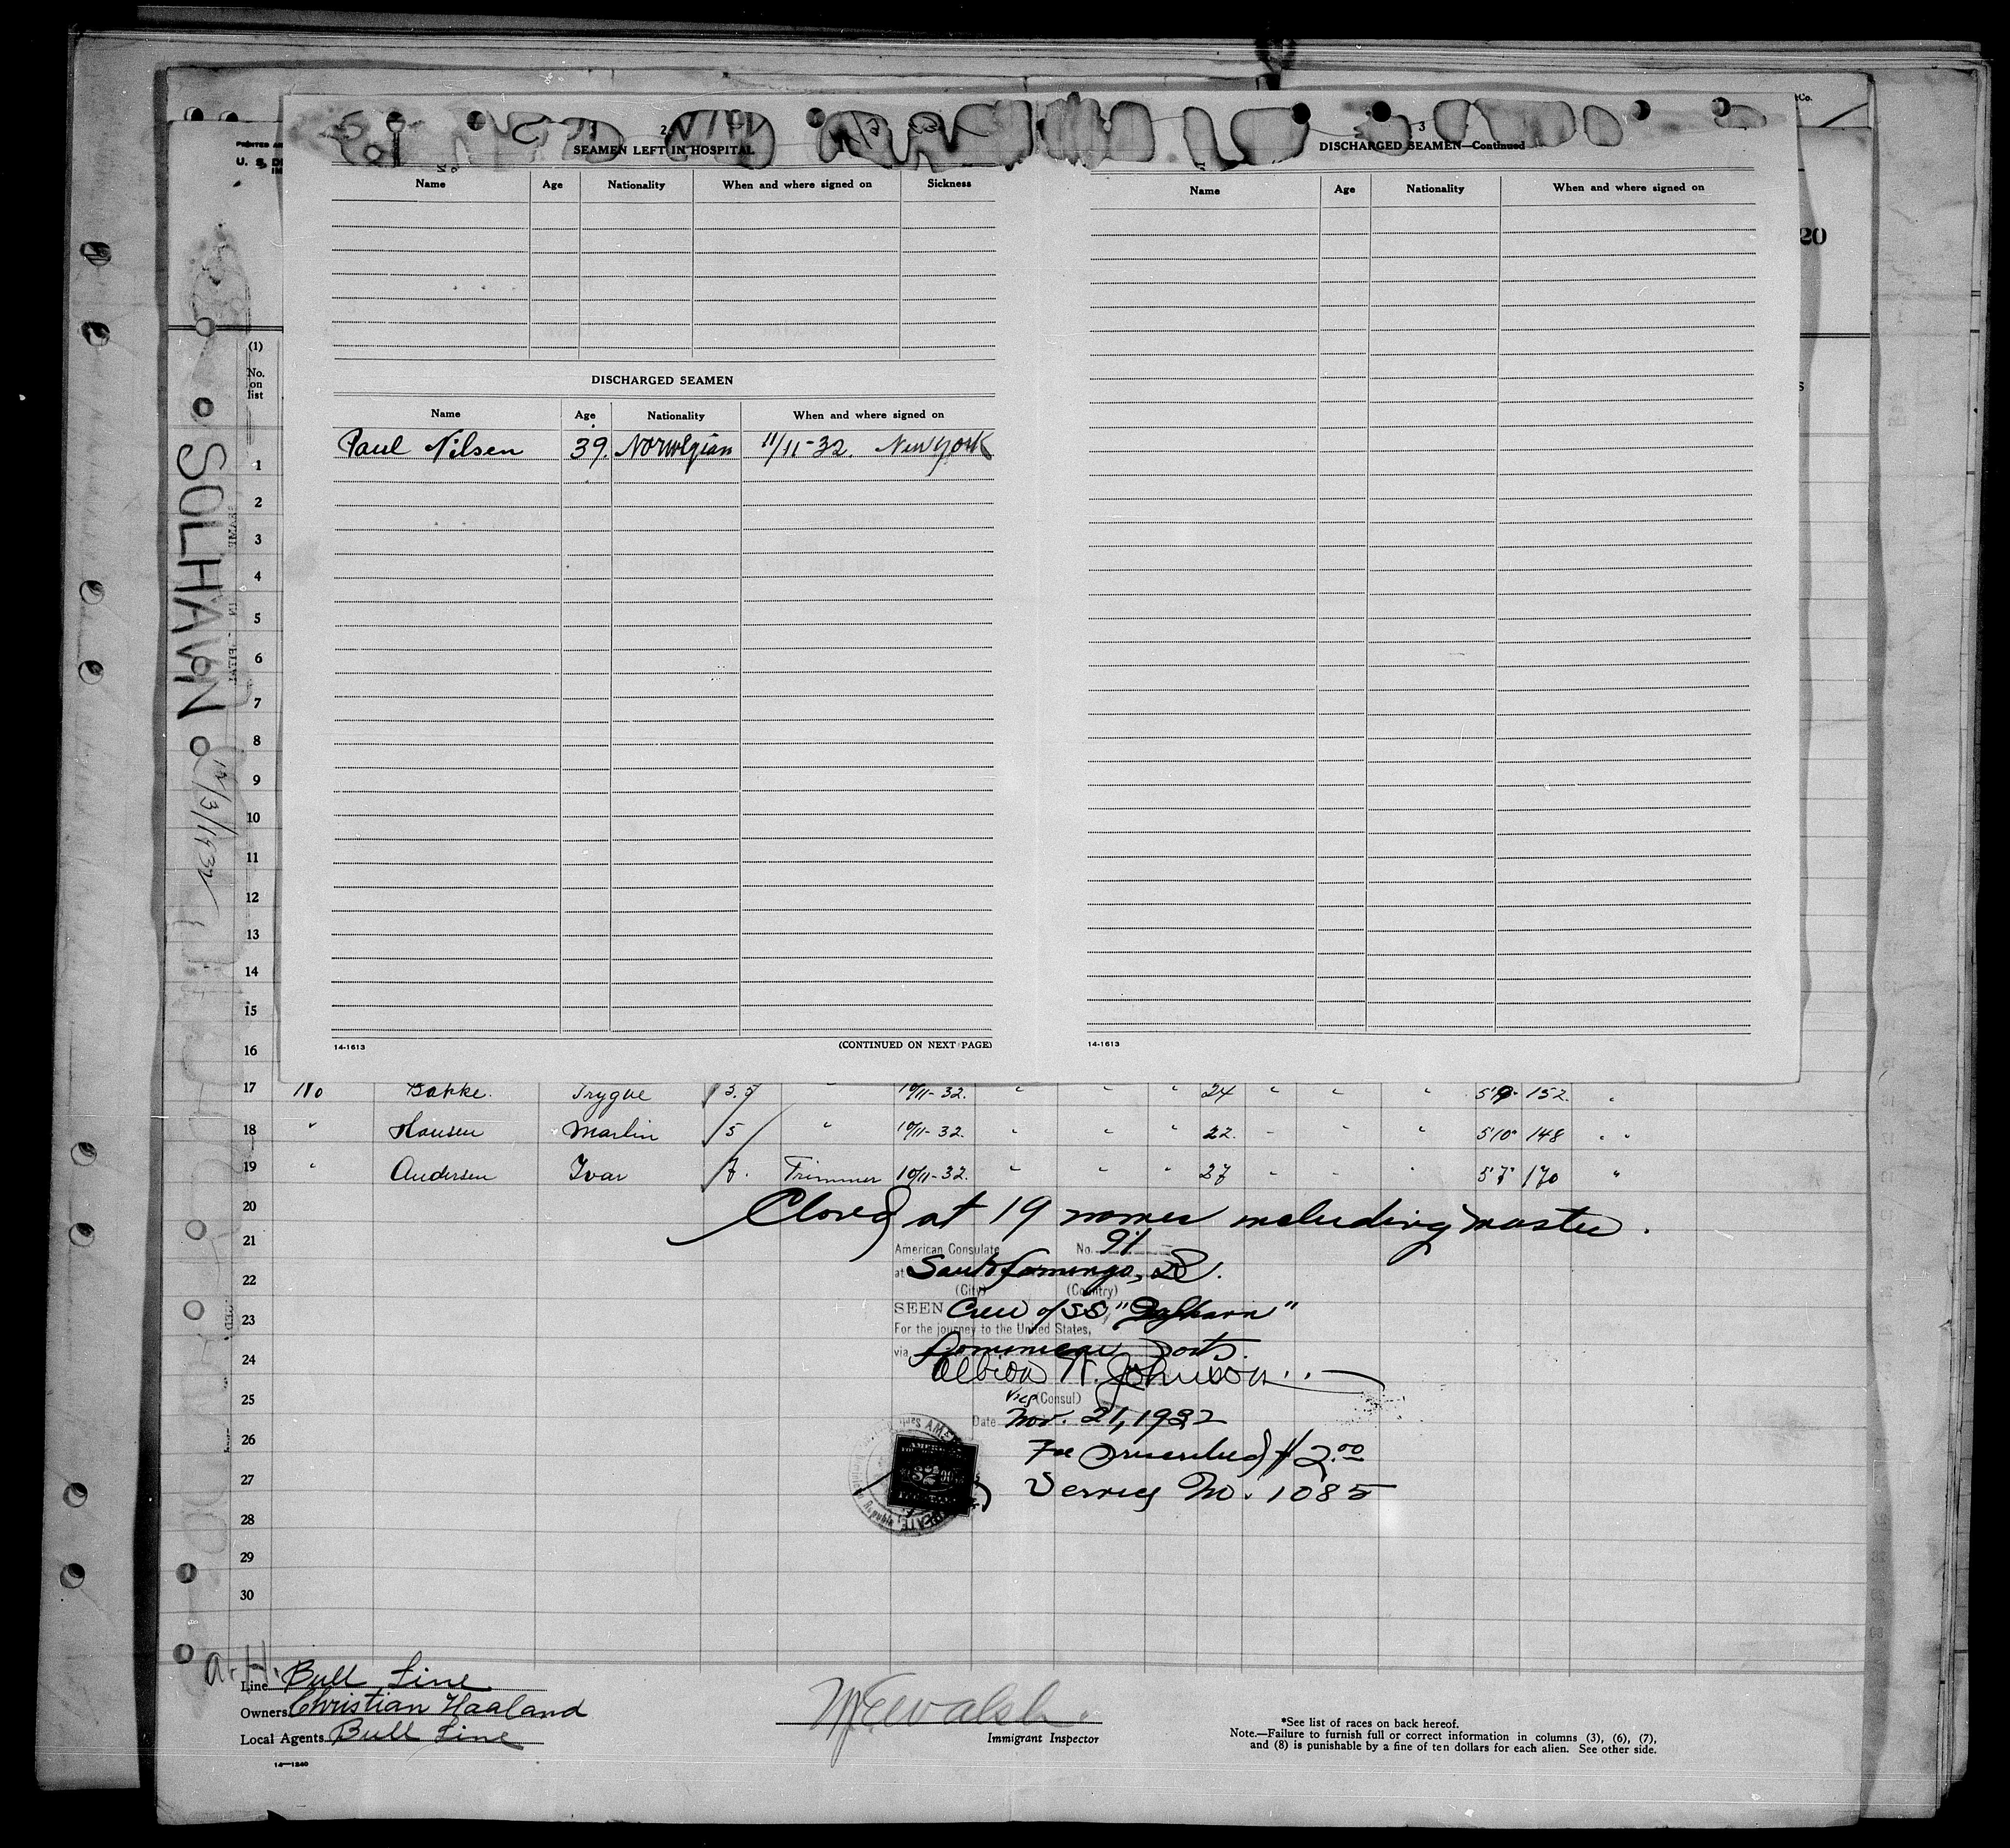 2
SEAMEN LEFT IN HOSPITAL
Name Age Nationality When and where signed on Sickness
DISCHARGED SEAMEN
Name Age Nationality When and where signed on
Paul Nilsen 39. Norwegian 11/11-32. New York
14-1613 (CONTINUED ON NEXT PAGE)
3
DISCHARGED SEAMEN—Continued
Name Age Nationality When and where signed on
14-1613
Co.
20
PRINTED
U. S. D
IM
SOLHAVN
(1)
No.
on
list
1
2
3
4
5
6
7
8
9
10
11
12
13
14
15
16
17 No Bakke. Trygve 3.5 " 10/11-32. " " " 24 " " " 152. "
18 " Hansen Marlin 5 " 10/11-32. " " " 22. " " " 5'10" 148 " "
19 " Andersen Ivar 7. Trimmer 10/11-32. " " " 27 " " " 5'7" 170 "
20 Closed at 19 names including master.
21 American Consulate No. 91
22 at Santo Domingo, DR.
(City) (Country)
23 SEEN Crew of SS, "Solhavn"
For the journey to the United States,
24 via Dominican Ports.
Albion W. Johnson
25 Vice (Consul)
Date Nov. 21, 1932
26 Fee prescribed $2.00
27 Service No. 1085
28
29
30
A. H.
Line Bull Line
Owners Christian Haaland
Local Agents Bull Line
14—1240
Walsh.
Immigrant Inspector
*See list of races on back hereof.
Note.—Failure to furnish full or correct information in columns (3), (6), (7),
and (8) is punishable by a fine of ten dollars for each alien. See other side.